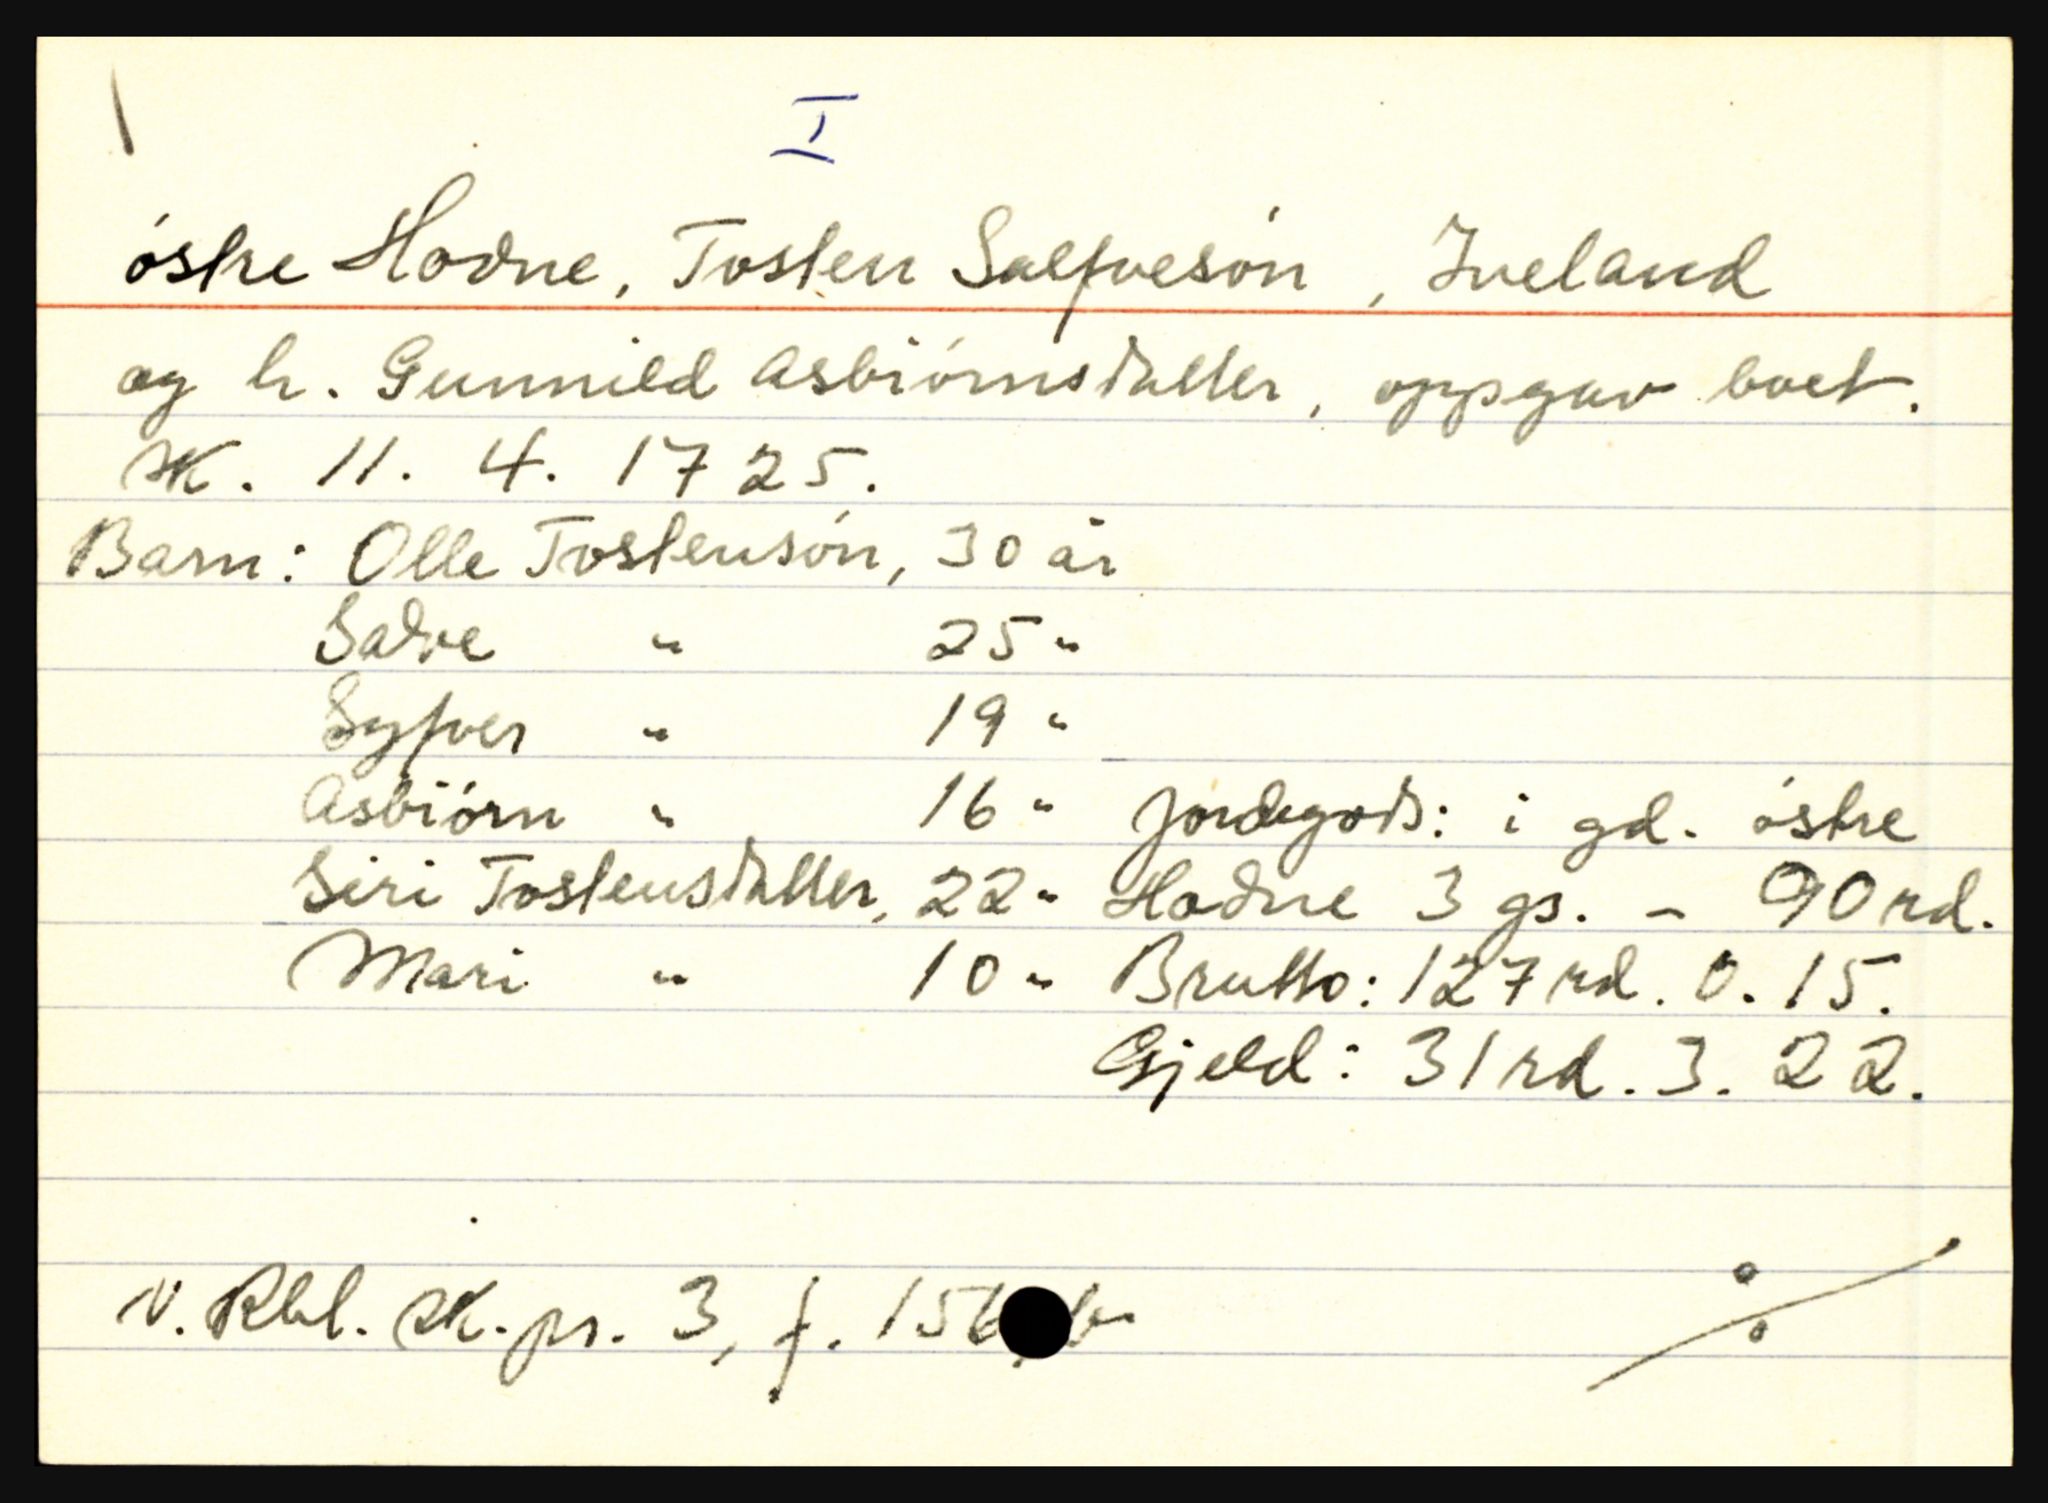 I
østre Hodne, Tosten Salfvesøn, Iveland
og h. Gunnild Asbiørnsdatter, oppgav boet.
Sk. 11. 4. 1725.
Barn: Olle Tostensøn, 30 år
Salve " 25 "
Syfver " 19 "
Asbiørn " 16 " Jordegods: i gd. østre
Siri Tostensdatter, 22 " Hodne 3 gs. - 90 rd.
Mari " 10 " Brutto: 127 rd. 0. 15.
Gjeld: 31 rd. 3. 22.
N. Rbl. sk. pr. 3, f. b